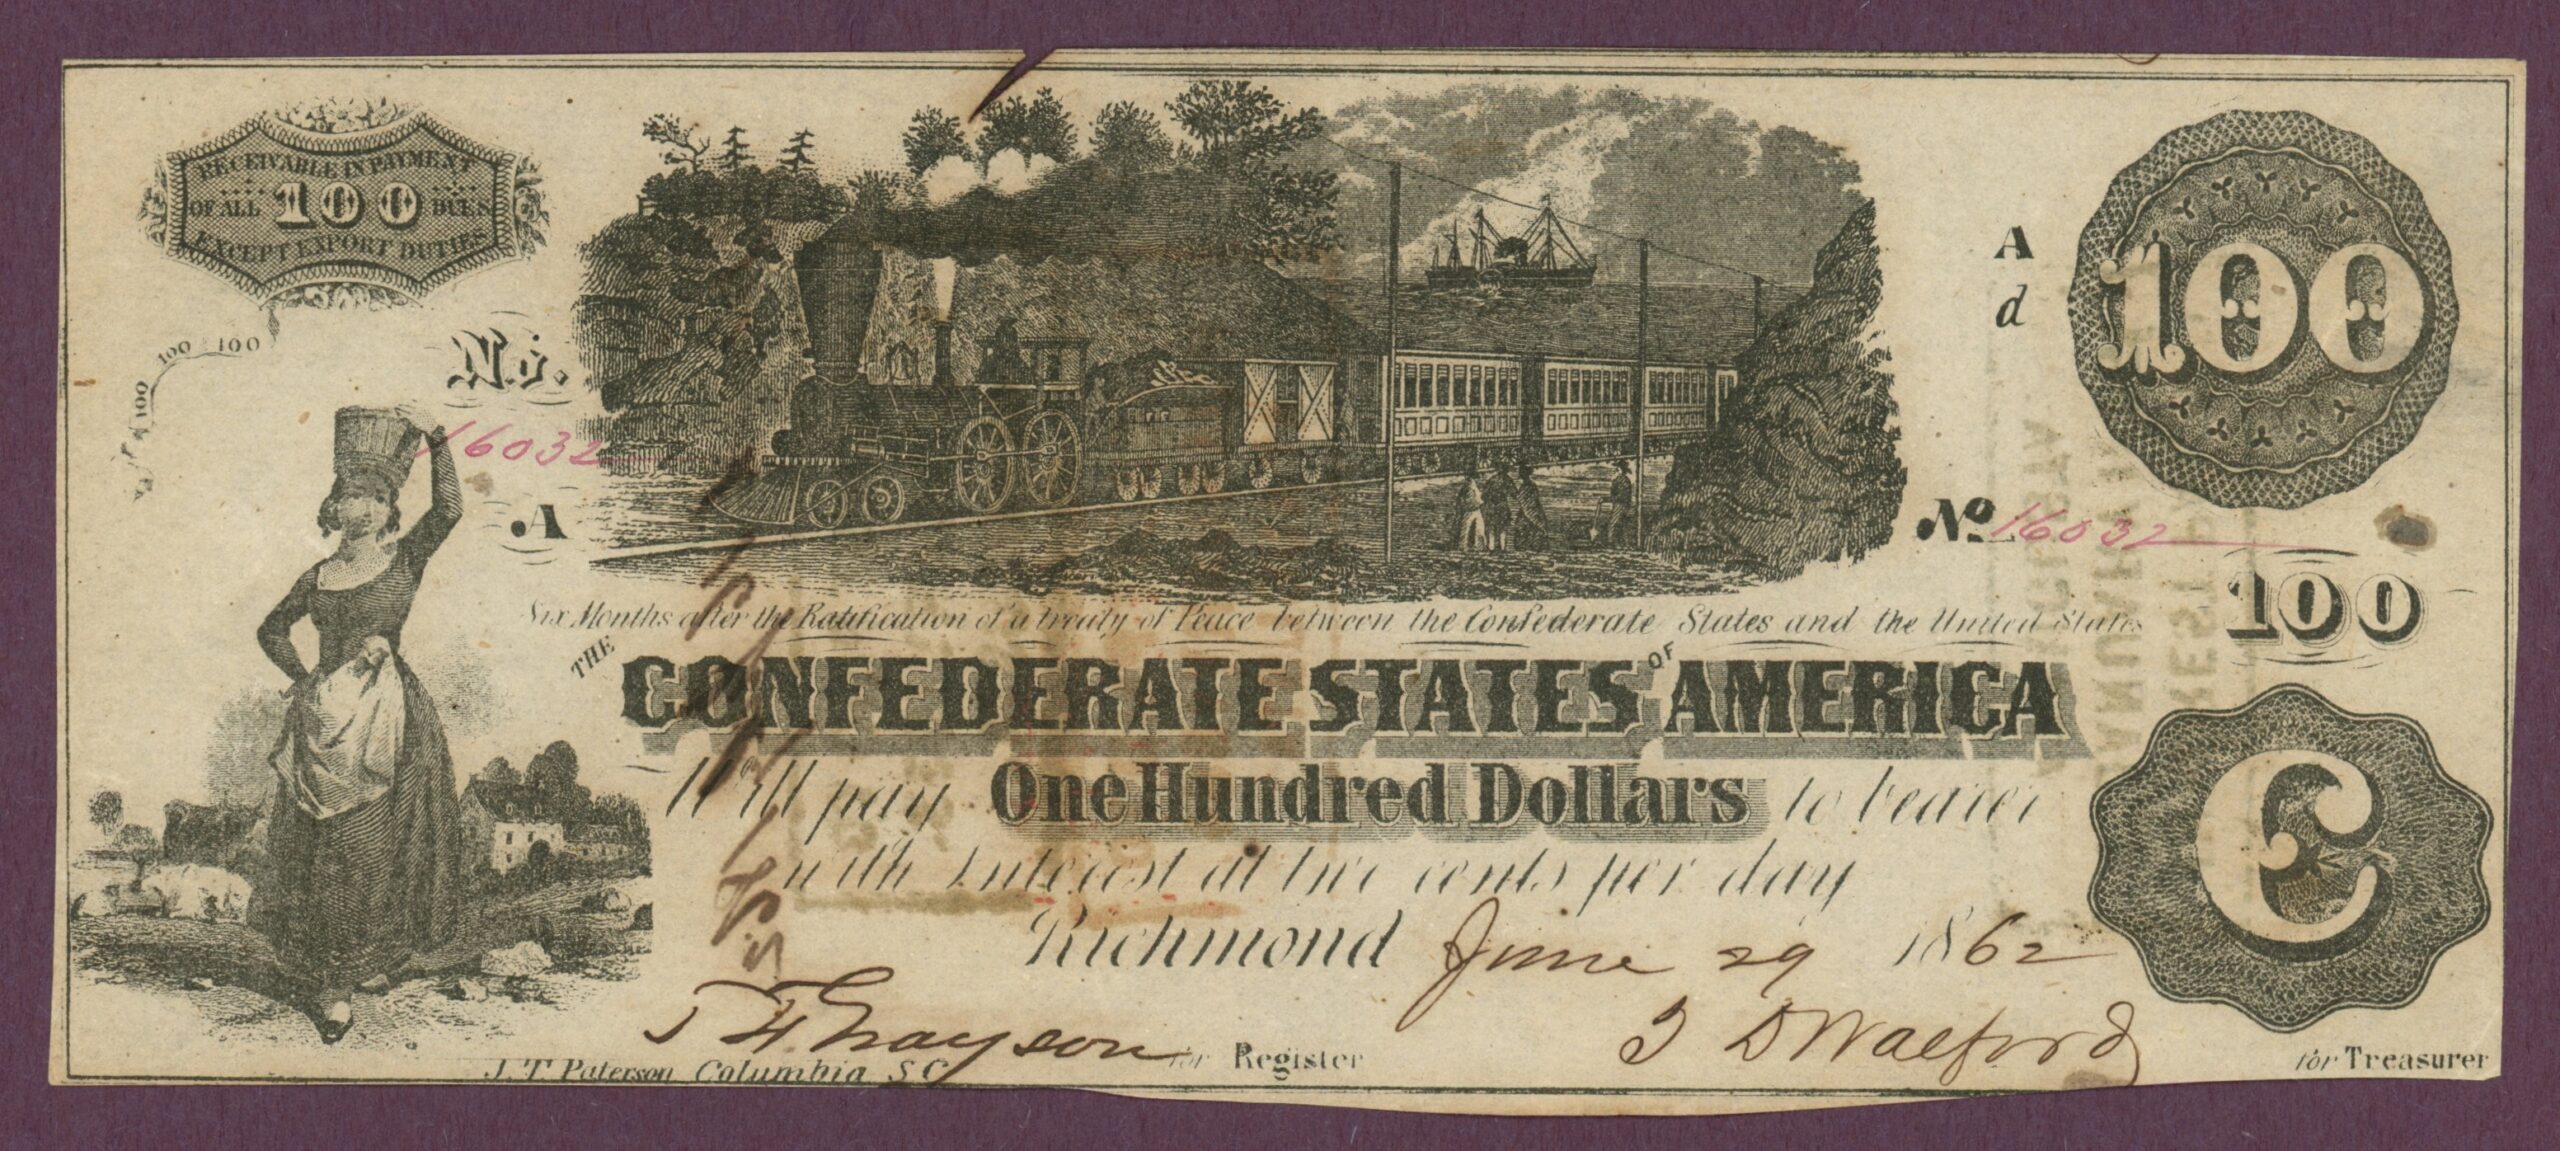 RECEIVABLE IN PAYMENT
OF ALL 100 DUES
EXCEPT EXPORT DUTIES
100 100 100
No.
16032
A
A
d
100
No 16032
100
Six Months after the Ratification of a treaty of Peace between the Confederate States and the United States
THE CONFEDERATE STATES OF AMERICA
Will pay One Hundred Dollars to bearer
with Interest at two cents per day
Richmond June 29 1862
C
for Register
for Treasurer
J. T. Paterson Columbia S C